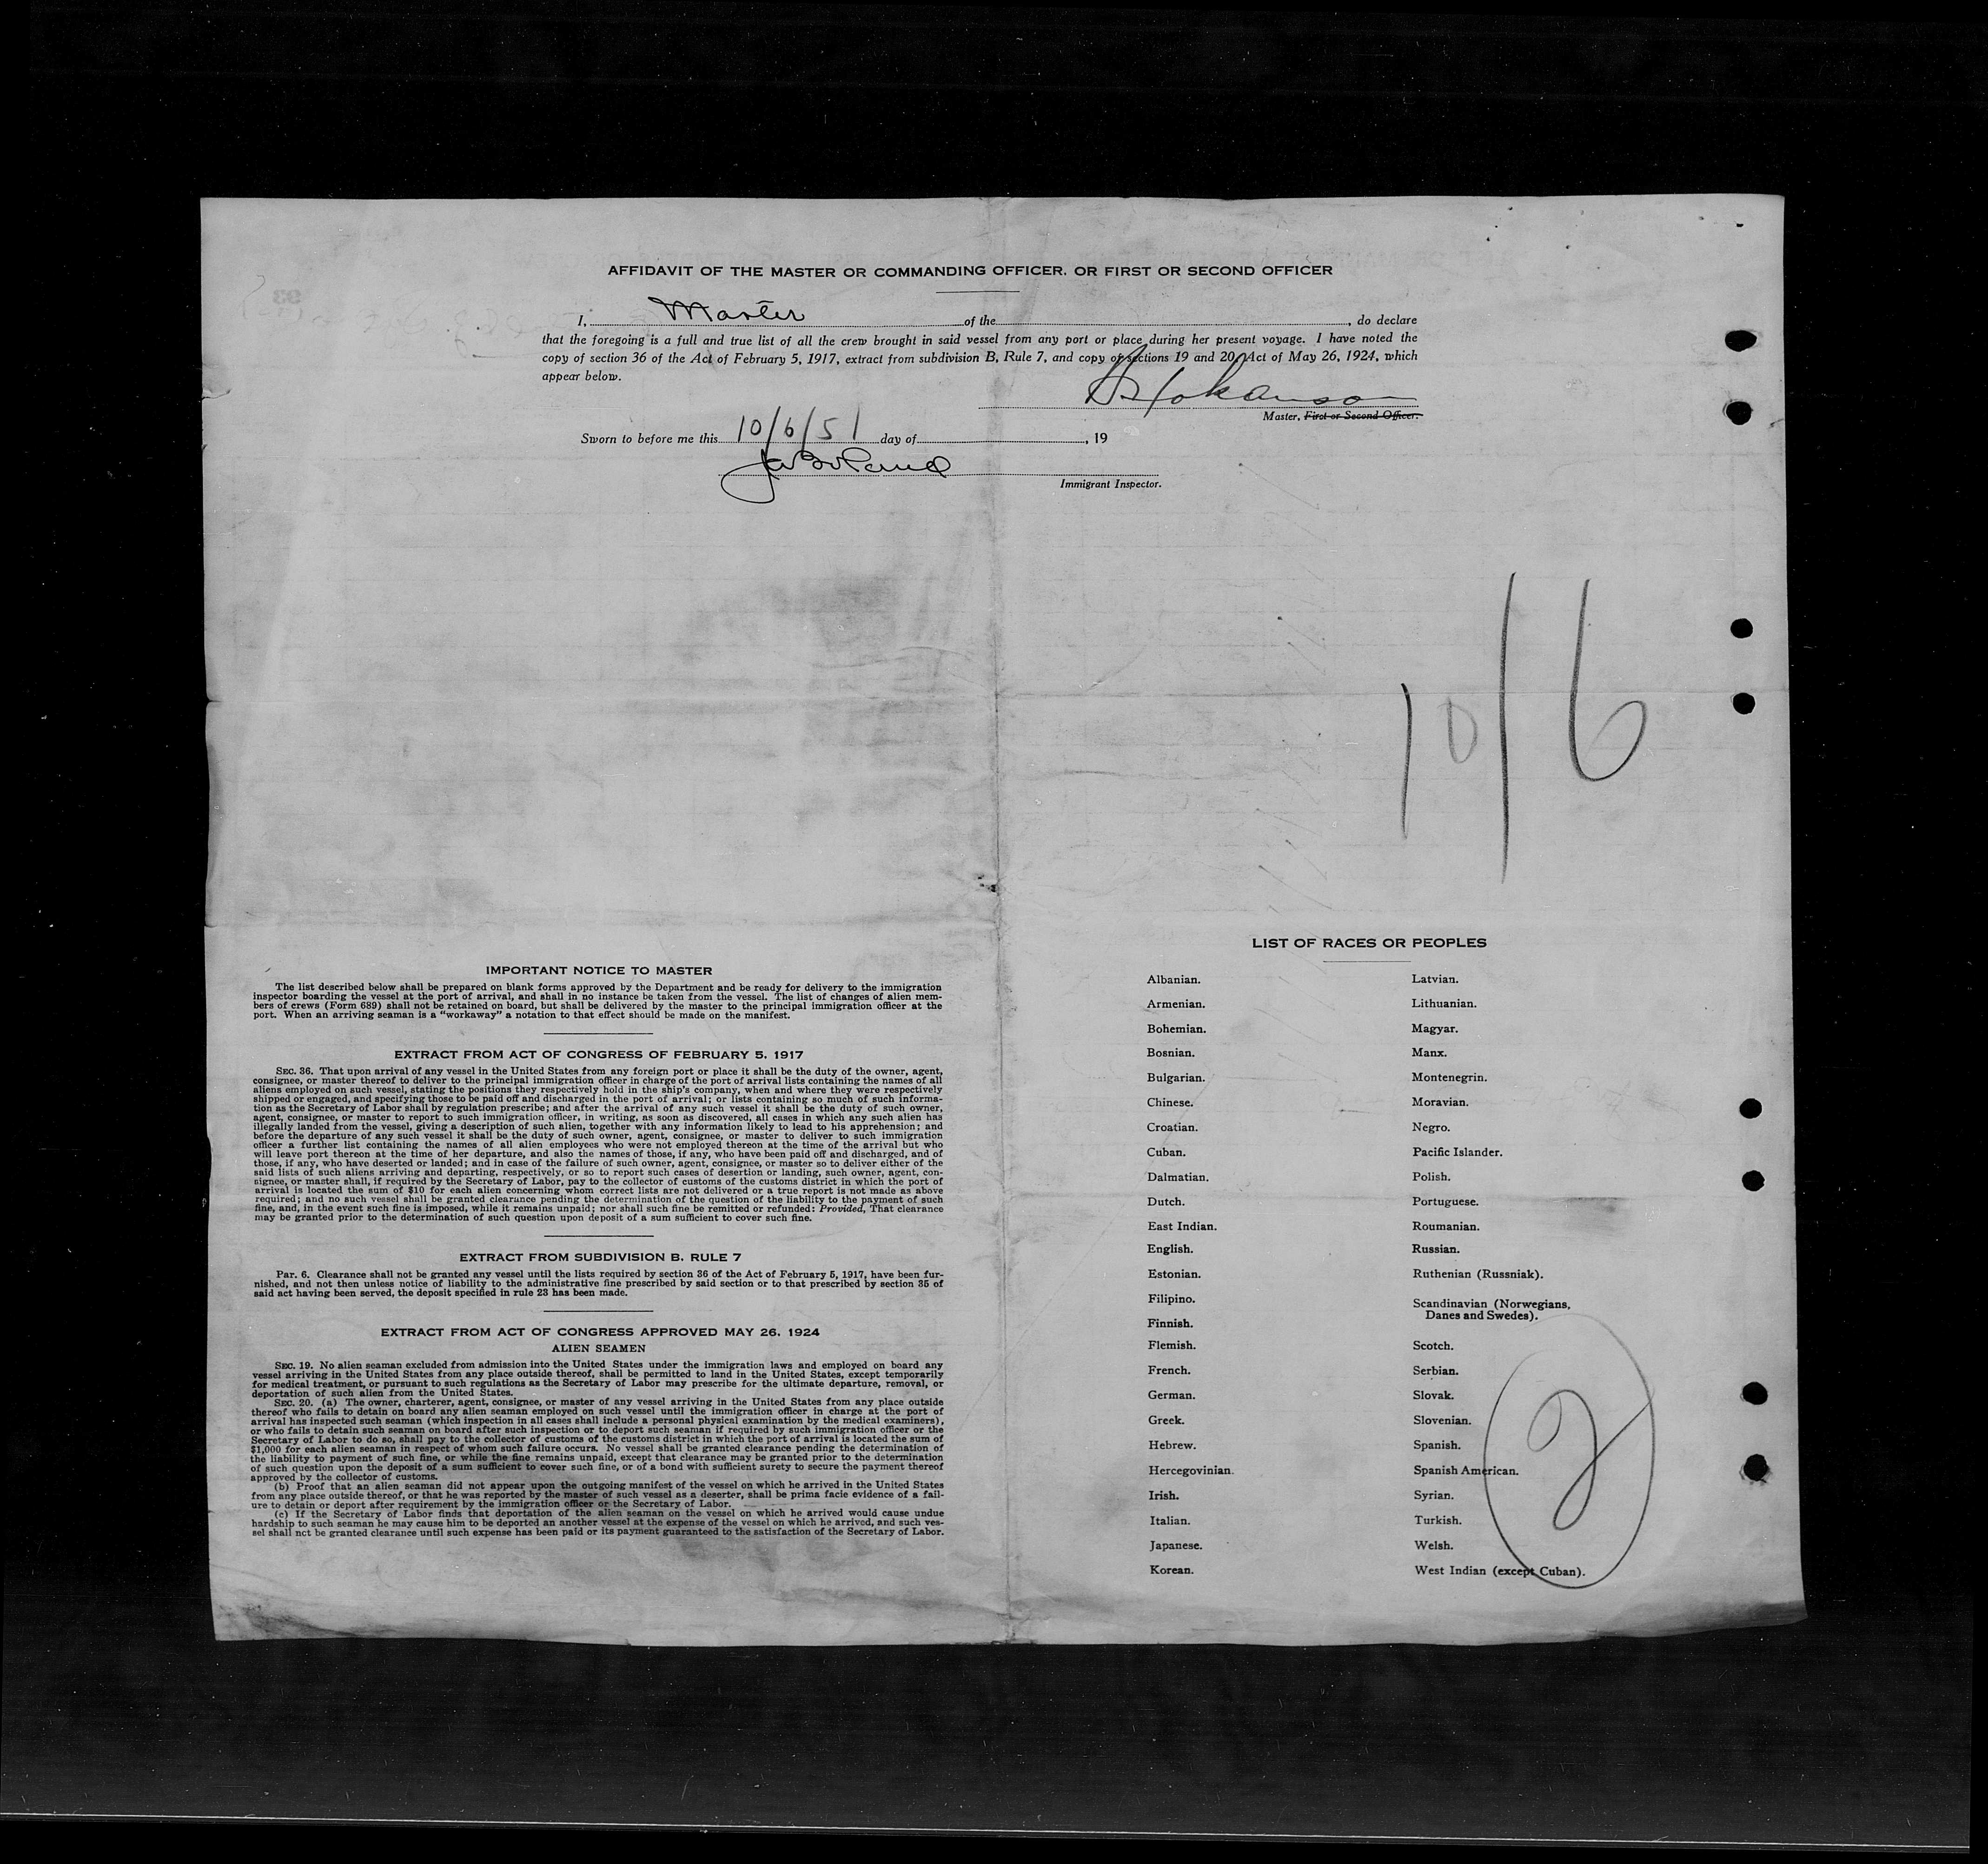 AFFIDAVIT OF THE MASTER OR COMMANDING OFFICER, OR FIRST OR SECOND OFFICER
I, Master of the , do declare
that the foregoing is a full and true list of all the crew brought in said vessel from any port or place during her present voyage. I have noted the
copy of section 36 of the Act of February 5, 1917, extract from subdivision B, Rule 7, and copy of sections 19 and 20, Act of May 26, 1924, which
appear below.
Master, First or Second Officer.
Sworn to before me this 10/6/51 day of , 19
Immigrant Inspector.
10/6
IMPORTANT NOTICE TO MASTER
The list described below shall be prepared on blank forms approved by the Department and be ready for delivery to the immigration
inspector boarding the vessel at the port of arrival, and shall in no instance be taken from the vessel. The list of changes of alien mem-
bers of crews (Form 689) shall not be retained on board, but shall be delivered by the master to the principal immigration officer at the
port. When an arriving seaman is a "workaway" a notation to that effect should be made on the manifest.
EXTRACT FROM ACT OF CONGRESS OF FEBRUARY 5, 1917
SEC. 36. That upon arrival of any vessel in the United States from any foreign port or place it shall be the duty of the owner, agent,
consignee, or master thereof to deliver to the principal immigration officer in charge of the port of arrival lists containing the names of all
aliens employed on such vessel, stating the positions they respectively hold in the ship's company, when and where they were respectively
shipped or engaged, and specifying those to be paid off and discharged in the port of arrival; or lists containing so much of such informa-
tion as the Secretary of Labor shall by regulation prescribe; and after the arrival of any such vessel it shall be the duty of such owner,
agent, consignee, or master to report to such immigration officer, in writing, as soon as discovered, all cases in which any such alien has
illegally landed from the vessel, giving a description of such alien, together with any information likely to lead to his apprehension; and
before the departure of any such vessel it shall be the duty of such owner, agent, consignee, or master to deliver to such immigration
officer a further list containing the names of all alien employees who were not employed thereon at the time of the arrival but who
will leave port thereon at the time of her departure, and also the names of those, if any, who have been paid off and discharged, and of
those, if any, who have deserted or landed; and in case of the failure of such owner, agent, consignee, or master so to deliver either of the
said lists of such aliens arriving and departing, respectively, or so to report such cases of desertion or landing, such owner, agent, con-
signee, or master shall, if required by the Secretary of Labor, pay to the collector of customs of the customs district in which the port of
arrival is located the sum of $10 for each alien concerning whom correct lists are not delivered or a true report is not made as above
required; and no such vessel shall be granted clearance pending the determination of the question of the liability to the payment of such
fine, and, in the event such fine is imposed, while it remains unpaid; nor shall such fine be remitted or refunded: Provided, That clearance
may be granted prior to the determination of such question upon deposit of a sum sufficient to cover such fine.
EXTRACT FROM SUBDIVISION B, RULE 7
Par. 6. Clearance shall not be granted any vessel until the lists required by section 36 of the Act of February 5, 1917, have been fur-
nished, and not then unless notice of liability to the administrative fine prescribed by said section or to that prescribed by section 35 of
said act having been served, the deposit specified in rule 23 has been made.
EXTRACT FROM ACT OF CONGRESS APPROVED MAY 26, 1924
ALIEN SEAMEN
SEC. 19. No alien seaman excluded from admission into the United States under the immigration laws and employed on board any
vessel arriving in the United States from any place outside thereof, shall be permitted to land in the United States, except temporarily
for medical treatment, or pursuant to such regulations as the Secretary of Labor may prescribe for the ultimate departure, removal, or
deportation of such alien from the United States.
SEC. 20. (a) The owner, charterer, agent, consignee, or master of any vessel arriving in the United States from any place outside
thereof who fails to detain on board any alien seaman employed on such vessel until the immigration officer in charge at the port of
arrival has inspected such seaman (which inspection in all cases shall include a personal physical examination by the medical examiners),
or who fails to detain such seaman on board after such inspection or to deport such seaman if required by such immigration officer or the
Secretary of Labor to do so, shall pay to the collector of customs of the customs district in which the port of arrival is located the sum of
$1,000 for each alien seaman in respect of whom such failure occurs. No vessel shall be granted clearance pending the determination of
the liability to payment of such fine, or while the fine remains unpaid, except that clearance may be granted prior to the determination
of such question upon the deposit of a sum sufficient to cover such fine, or of a bond with sufficient surety to secure the payment thereof
approved by the collector of customs.
(b) Proof that an alien seaman did not appear upon the outgoing manifest of the vessel on which he arrived in the United States
from any place outside thereof, or that he was reported by the master of such vessel as a deserter, shall be prima facie evidence of a fail-
ure to detain or deport after requirement by the immigration officer or the Secretary of Labor.
(c) If the Secretary of Labor finds that deportation of the alien seaman on the vessel on which he arrived would cause undue
hardship to such seaman he may cause him to be deported an another vessel at the expense of the vessel on which he arrived, and such ves-
sel shall not be granted clearance until such expense has been paid or its payment guaranteed to the satisfaction of the Secretary of Labor.
LIST OF RACES OR PEOPLES
Albanian.
Armenian.
Bohemian.
Bosnian.
Bulgarian.
Chinese.
Croatian.
Cuban.
Dalmatian.
Dutch.
East Indian.
English.
Estonian.
Filipino.
Finnish.
Flemish.
French.
German.
Greek.
Hebrew.
Hercegovinian.
Irish.
Italian.
Japanese.
Korean.
Latvian.
Lithuanian.
Magyar.
Manx.
Montenegrin.
Moravian.
Negro.
Pacific Islander.
Polish.
Portuguese.
Roumanian.
Russian.
Ruthenian (Russniak).
Scandinavian (Norwegians,
Danes and Swedes).
Scotch.
Serbian.
Slovak.
Slovenian.
Spanish.
Spanish American.
Syrian.
Turkish.
Welsh.
West Indian (except Cuban).
2